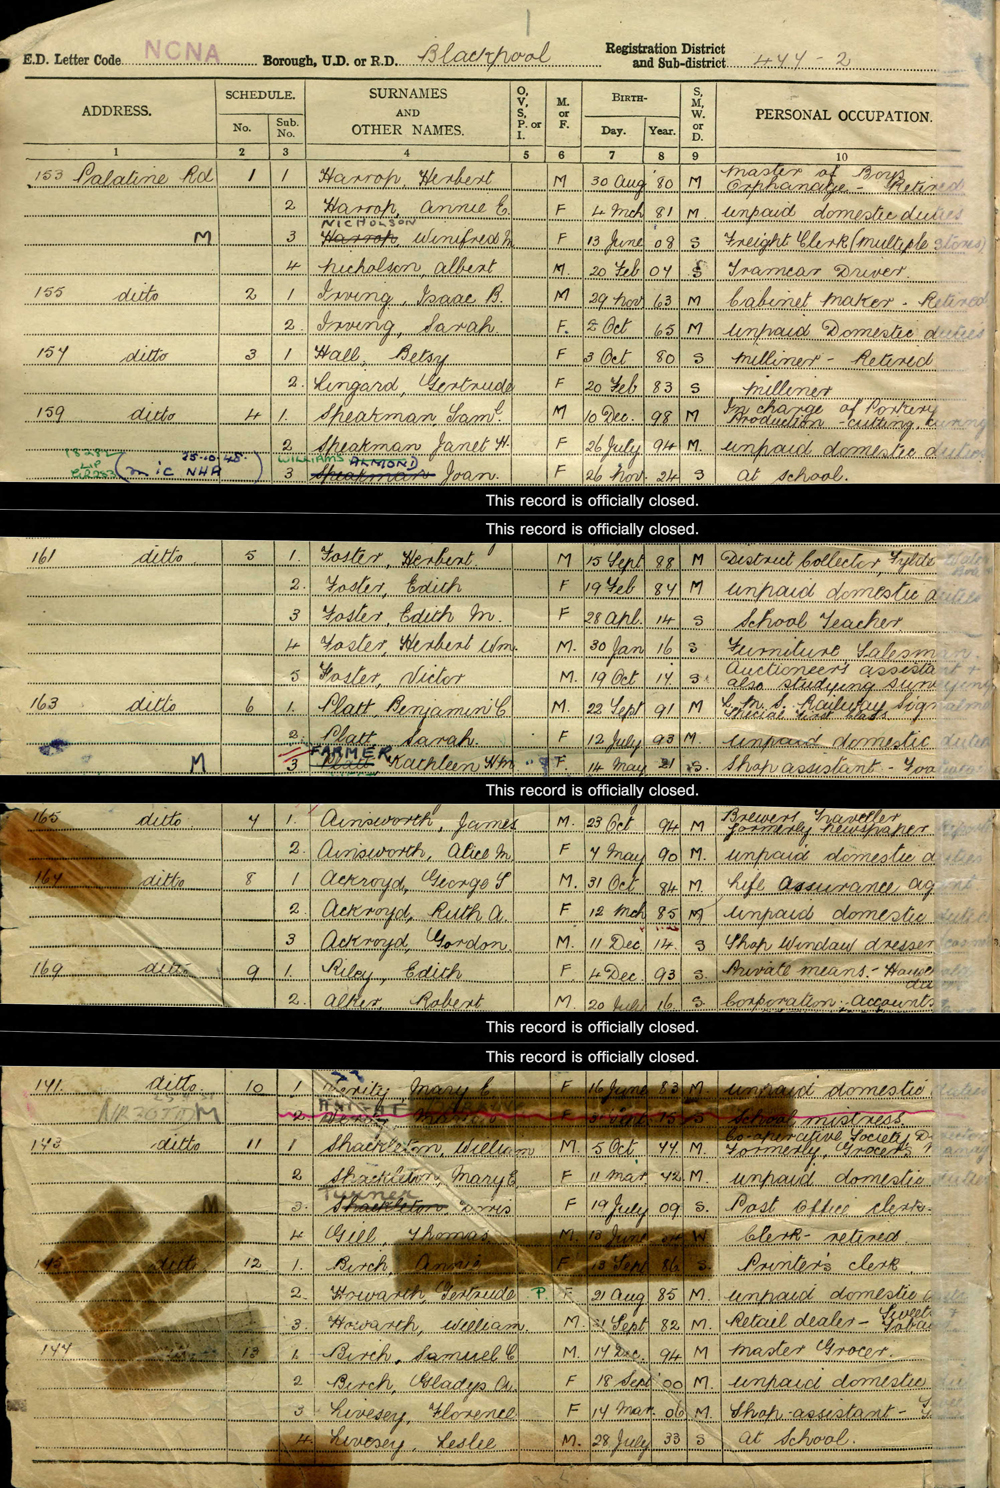 E.D. Letter Code NCNA Borough, U.D. or R.D. Blackpool Registration District and Sub-district 444-2
ADDRESS. SCHEDULE. No. Sub. No. SURNAMES AND OTHER NAMES. O, V, S, P. or I. M. or F. BIRTH- Day. Year. S, M, W. or D. PERSONAL OCCUPATION.
1 2 3 4 5 6 7 8 9 10
153 Palatine Rd 1 1 Harrop, Herbert M 30 Aug 80 M Master of Boys Orphanage - Retired
2 Harrop, Annie E. F 4 Mch 81 M unpaid domestic duties
NICHOLSON
M 3 Harrop Winifred M. F 13 June 08 S Freight Clerk (multiple stores)
4 Nicholson, Albert M. 20 Feb 07 S Tramcar Driver.
155 ditto 2 1 Irving, Isaac B. M 29 Nov 63 M Cabinet Maker - Retired
2. Irving, Sarah F. Oct 65 M unpaid Domestic duties
157 ditto 3 1 Hall, Betsy F 3 Oct 80 S Milliner - Retired
2. Lingard, Gertrude F 20 Feb 83 S Milliner
159 ditto 4 1. Speakman Saml. M 10 Dec. 98 M In charge of Porkery Production - cutting, curing
2 Speakman Janet H. F 26 July 94 M unpaid domestic duties
WILLIAMS ALMOND
3 Speakman Joan. F 26 Nov. 24 S At school.
This record is officially closed.
This record is officially closed.
161 ditto 5 1. Foster, Herbert. M 15 Sept 88 M District Collector, Fylde
2. Foster, Edith F 19 Feb 84 M unpaid domestic duties
3 Foster, Edith M. F 28 Apl. 14 S School Teacher
4 Foster, Herbert Wm. M. 30 Jan 16 S Furniture Salesman.
5 Foster, Victor M. 19 Oct 17 S. Auctioneer's assistant + also studying Surveying
163 ditto 6 1. Platt, Benjamin C M. 22 Sept 91 M L.M.S. Railway Signalman Special First Class
2. Platt, Sarah F 12 July 93 M. unpaid domestic duties
FARMER
M 3 Platt Kathleen H.M. F. 14 May 21 S. Shop assistant -
This record is officially closed.
165 ditto 7 1. Ainsworth, James M. 23 Oct 94 M Brewers Traveller formerly newspaper
2. Ainsworth, Alice M. F 7 May 90 M. unpaid domestic duties
167 ditto 8 1 Ackroyd, George S M. 31 Oct 84 M. Life Assurance agent
2. Ackroyd, Ruth A. F 12 Mch 85 M unpaid domestic duties
3 Ackroyd, Gordon. M. 11 Dec. 14. S Shop Window dresser
169 ditto 9 1. Riley, Edith F. 4 Dec. 93 S. Private means -
2. Alker, Robert M. 20 July 16. S. Corporation: Accounts
This record is officially closed.
This record is officially closed.
171. ditto. 10 1 Verity Mary E F 16 June 83 M unpaid domestic duties
M 2. F S School mistress
173 ditto 11 1 Shackleton, William M. 5 Oct 77 M. Co-operative Society Formerly, Grocer's
2 Shackleton, Mary E. F 11 Mar. 72 M. unpaid domestic duties
Turner
M 3. Shackleton Doris F 19 July 09 S. Post Office clerk.
4 Gill, Thomas M. 13 June W Clerk - retired
ditto 12 1. Birch, Annie F 13 Sept 86 S. Printer's clerk
2. Howarth, Gertrude P. F. 21 Aug 85 M. unpaid domestic
3. Howarth, William. M. 21 Sept 82 M. Retail dealer - Sweets + Tobacco
177 13 1. Birch, Samuel C M. 17 Dec. 94 M Master Grocer.
2 Birch, Gladys A. F 18 Sept 00 M. unpaid domestic
3 Livesey, Florence F 14 Mar. 06 M. Shop-assistant -
4. Livesey, Leslie M. 28 July 33 S At School.